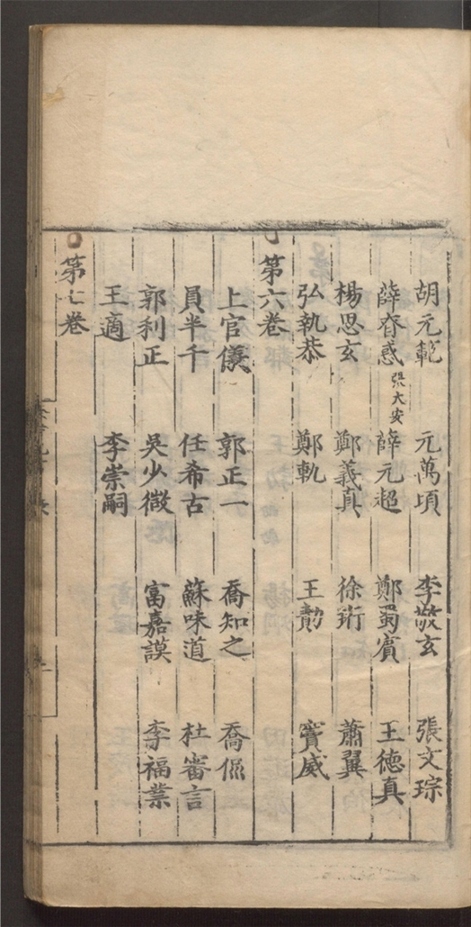 胡元範 元萬頃 李敬玄 張文琮
薛眘惑 張大安 薛元超 鄭蜀賓 王德真
楊思玄 鄭義真 徐珩 蕭翼
弘執恭 鄭軌 王勣 竇威
第六卷
上官儀 郭正一 喬知之 喬侃
員半千 任希古 蘇味道 杜審言
郭利正 吳少微 富嘉謨 李福業
王適 李崇嗣
第七卷